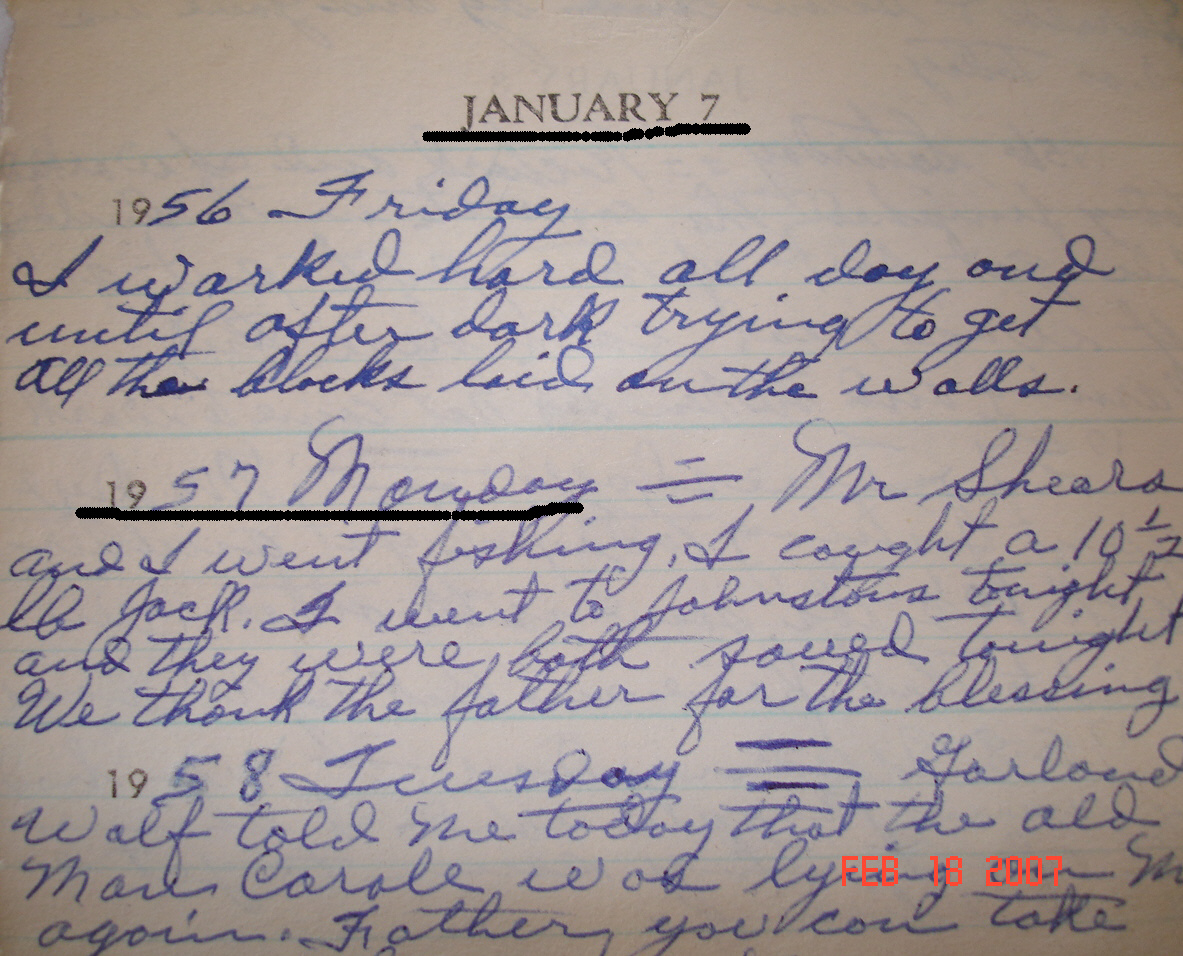 JANUARY 7
1956 Friday
I worked hard all day and
until after dark trying to get
all the blocks laid on the walls.
1957 Monday = Mr Shears
and I went fishing. I caught a 10 1/2
lb Jack. I went to Johnstons tonight
and they were both saved tonight
We thank the father for the blessing
1958 Tuesday Garland
Wolf told me today that the old
Man Carole was lying on M
again. Father, you can take
FEB 18 2007